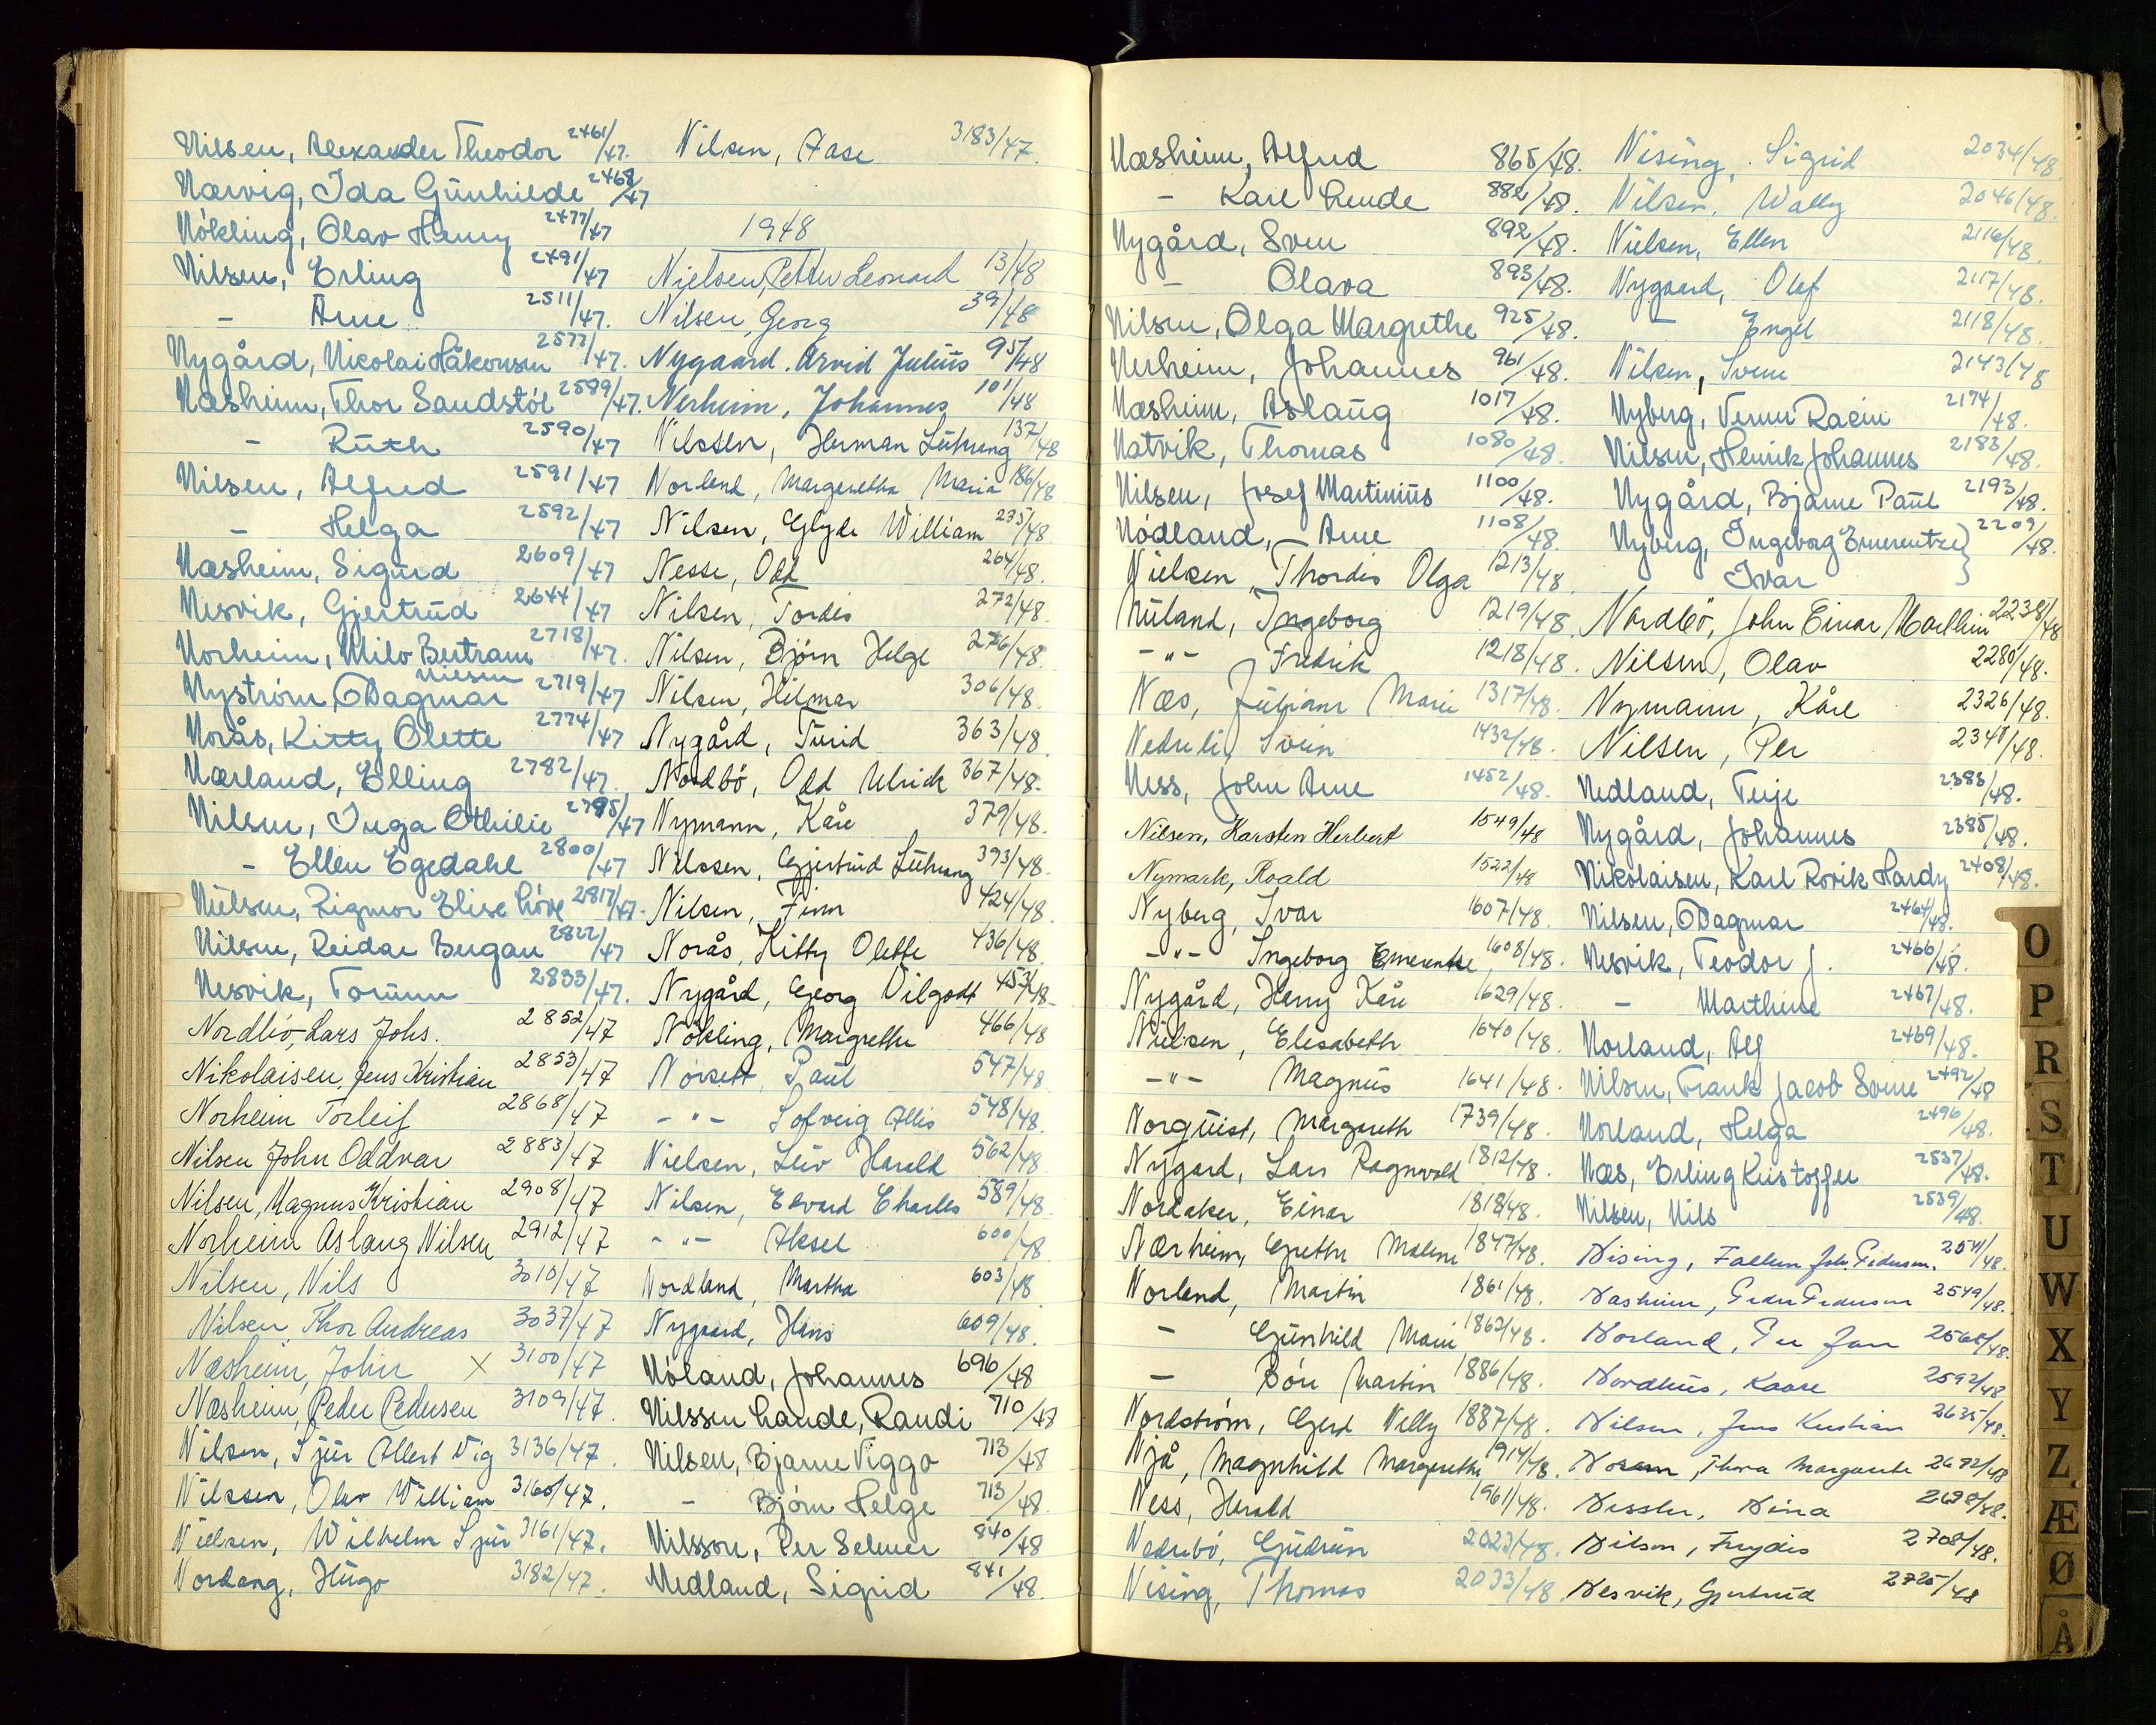 Nilsen, Alexander Theodor 2461/47.
Nærvig, Ida Gunhilde 2468/47
Nökling, Olav Henry 2477/47
Nilsen, Erling 2491/47
- Arne 2511/47.
Nygård, Nicolai Håkonsen 2577/47.
Næsheim, Thor Sandstöl 2589/47.
- Ruth 2590/47
Nilsen, Alfred 2591/47
- Helga 2592/47
Næsheim, Sigurd 2609/47
Nesvik, Gjertrud 2644/47
Norheim, Milo Bertram 2718/47.
Nyström, Dagmar Nilsen 2719/47
Norås, Kitty Olette 2774/47
Nærland, Elling 2782/47.
Nilsen, Inga Othilie 2795/47
- Ellen Egedahl 2800/47
Nielsen, Rigmor Elise Löve 2817/47.
Nilsen, Reidar Bergan 2822/47
Nesvik, Torunn 2833/47.
Nordbö, Lars Johs. 2852/47
Nikolaisen, Jens Kristian 2853/47
Norheim Torleif 2868/47
Nilsen John Oddvar 2883/47
Nilsen, Magnus Kristian 2908/47
Norheim Aslaug Nilsen 2912/47
Nilsen, Nils 3010/47
Nilsen, Thor Andreas 3037/47
Næsheim, John X 3100/47
Næsheim, Peder Pedersen 3109/47
Nilsen, Sjur Allert Vig 3136/47.
Nilssen, Olav William 3160/47.
Nielsen, Wilhelm Sjur 3161/47.
Nordang, Hugo 3182/47.
Nilsen, Aase 3183/47.
1948
Nielsen, Petter Leonard 13/48
Nilsen, Georg 39/48
Nygaard. Arvid Julius 95/48
Nerheim, Johannes 101/48
Nilssen, Herman Lührung 137/48
Norland, Margaretha Maria 186/48
Nilsen, Glyde William 235/48
Nesse, Odd 264/48.
Nilsen, Tordis 272/48.
Nilsen, Björn Helge 276/48.
Nilsen, Hilmar 306/48.
Nygård, Turid 363/48.
Nordbö, Odd Ulrick 367/48.
Nymann, Kåre 379/48.
Nilssen, Gjertrud Lührung 393/48.
Nilsen, Finn 424/48
Norås, Kitty Olette 436/48.
Nygård, Georg Vilgodt 453/48
Nökling, Margrethe 466/48
Norsett, Paul 547/48
- " - Solveig Allis 548/48.
Nielsen, Leiv Harald 562/48
Nilsen, Edvard Charles 589/48
- " - Aksel 600/48
Nordland, Martha 603/48
Nygaard, Hans 609/48.
Nöland, Johannes 696/48
Nilssen Lande, Randi 710/48
Nilsen, Bjarne Viggo 713/48
- Björn Helge 713/48.
Nilsson, Per Selmer 840/48
Nedland, Sigrid 841/48.
Næsheim, Alfred 865/48.
- Karl Lende 882/48.
Nygård, Sven 892/48.
- Olava 893/48.
Nilsen, Olga Margrethe 925/48.
Nerheim, Johannes 961/48.
Næsheim, Aslaug 1017/48.
Natvik, Thomas 1080/48.
Nilsen, Josef Martinius 1100/48.
Nödland, Arne 1108/48.
Nielsen, Thordis Olga 1213/48
Nuland, Ingeborg 1219/48.
- " - Fredrik 1218/48.
Næs, Juliane Marie 1317/48.
Nedreli, Svein 1432/48.
Ness, John Arne 1452/48.
Nilsen, Karsten Herbert 1549/48
Nymark, Roald 1522/48
Nyberg, Ivar 1607/48.
- " - Ingeborg Emerentse 1608/48.
Nygård, Henry Kåre 1629/48.
Nielsen, Elisabeth 1640/48.
- " - Magnus 1641/48.
Norquist, Margareth 1739/48.
Nygard, Lars Ragnvald 1812/48.
Nordaker, Einar 1818/48.
Nærheim, Grethe Malene 1847/48.
Norland, Martin 1861/48.
- Gunhild Marie 1862/48.
- Böre Martin 1886/48.
Nordström, Gerd Nelly 1887/48.
Njå, Magnhild Margarethe 1914/48.
Ness, Harald 1961/48.
Nedrebö, Gudrun 2023/48.
Nising, Thomas 2033/48.
Nising, Sigrid 2034/48.
Nilsen, Wally 2046/48.
Nielsen, Ellen 2116/48.
Nygaard, Olaf 2117/48.
- Engel 2118/48.
Nilsen, Svenn 2143/48
Nyberg, Verner Racin 2174/48.
Nilsen, Henrik Johannes 2183/48.
Nygård, Bjarne Paul 2193/48.
Nyberg, Ingeborg Emerentze } 2209/48.
Ivar
Nordbö, John Einar Marthin 2238/48
Nilsen, Olav 2280/48.
Nymann, Kåre 2326/48.
Nilsen, Per 2348/48.
Nedland, Terje 2383/48.
Nygård, Johannes 2385/48.
Nikolaisen, Karl Rovik Hardy 2408/48.
Nilsen, Dagmar 2464/48.
Nesvik, Teodor J. 2466/48.
- Marthine 2467/48.
Norland, Alf 2469/48.
Nilsen, Frank Jacob Svene 2492/48
Norland, Helga 2496/48.
Næs, Erling Kristoffer 2537/48.
Nilsen, Nils 2539/48.
Nising, Joh. Pedersen. 2541/48.
Næsheim, Peder Pedersen 2549/48.
Norland, Per Jan 2568/48.
Nordhus, Kaare 2592/48
Nilsen, Jens Kristian 2635/48.
Thora Margarethe 2692/48
Nessler, Nina 2698/48.
Nilsen, Frøydis 2708/48.
Nesvik, Gjertrud 2725/48
O
P
R
S
T
U
W
X
Y
Z
Æ
Ø
Å